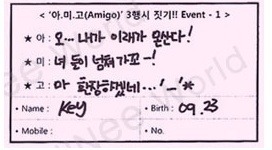 < '아.미.고(Amigo)' 3행시 짓기!! Event - 1 >
★ 아 : 오... 내가 이래가 일산다!
★ 미 : 너 돈이 넘쳐가꼬 -!
★ 고 : 아 환장하겠네...'_'*
• Name : Key • Birth : 09.23
• Mobile : • No.